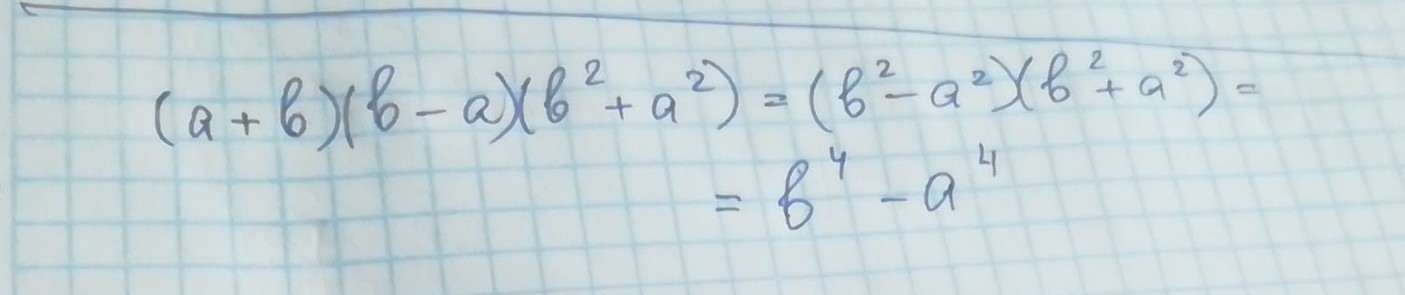 (a + b)(b - a)(b² + a²) = (b² - a²)(b² + a²) =
= b⁴ - a⁴